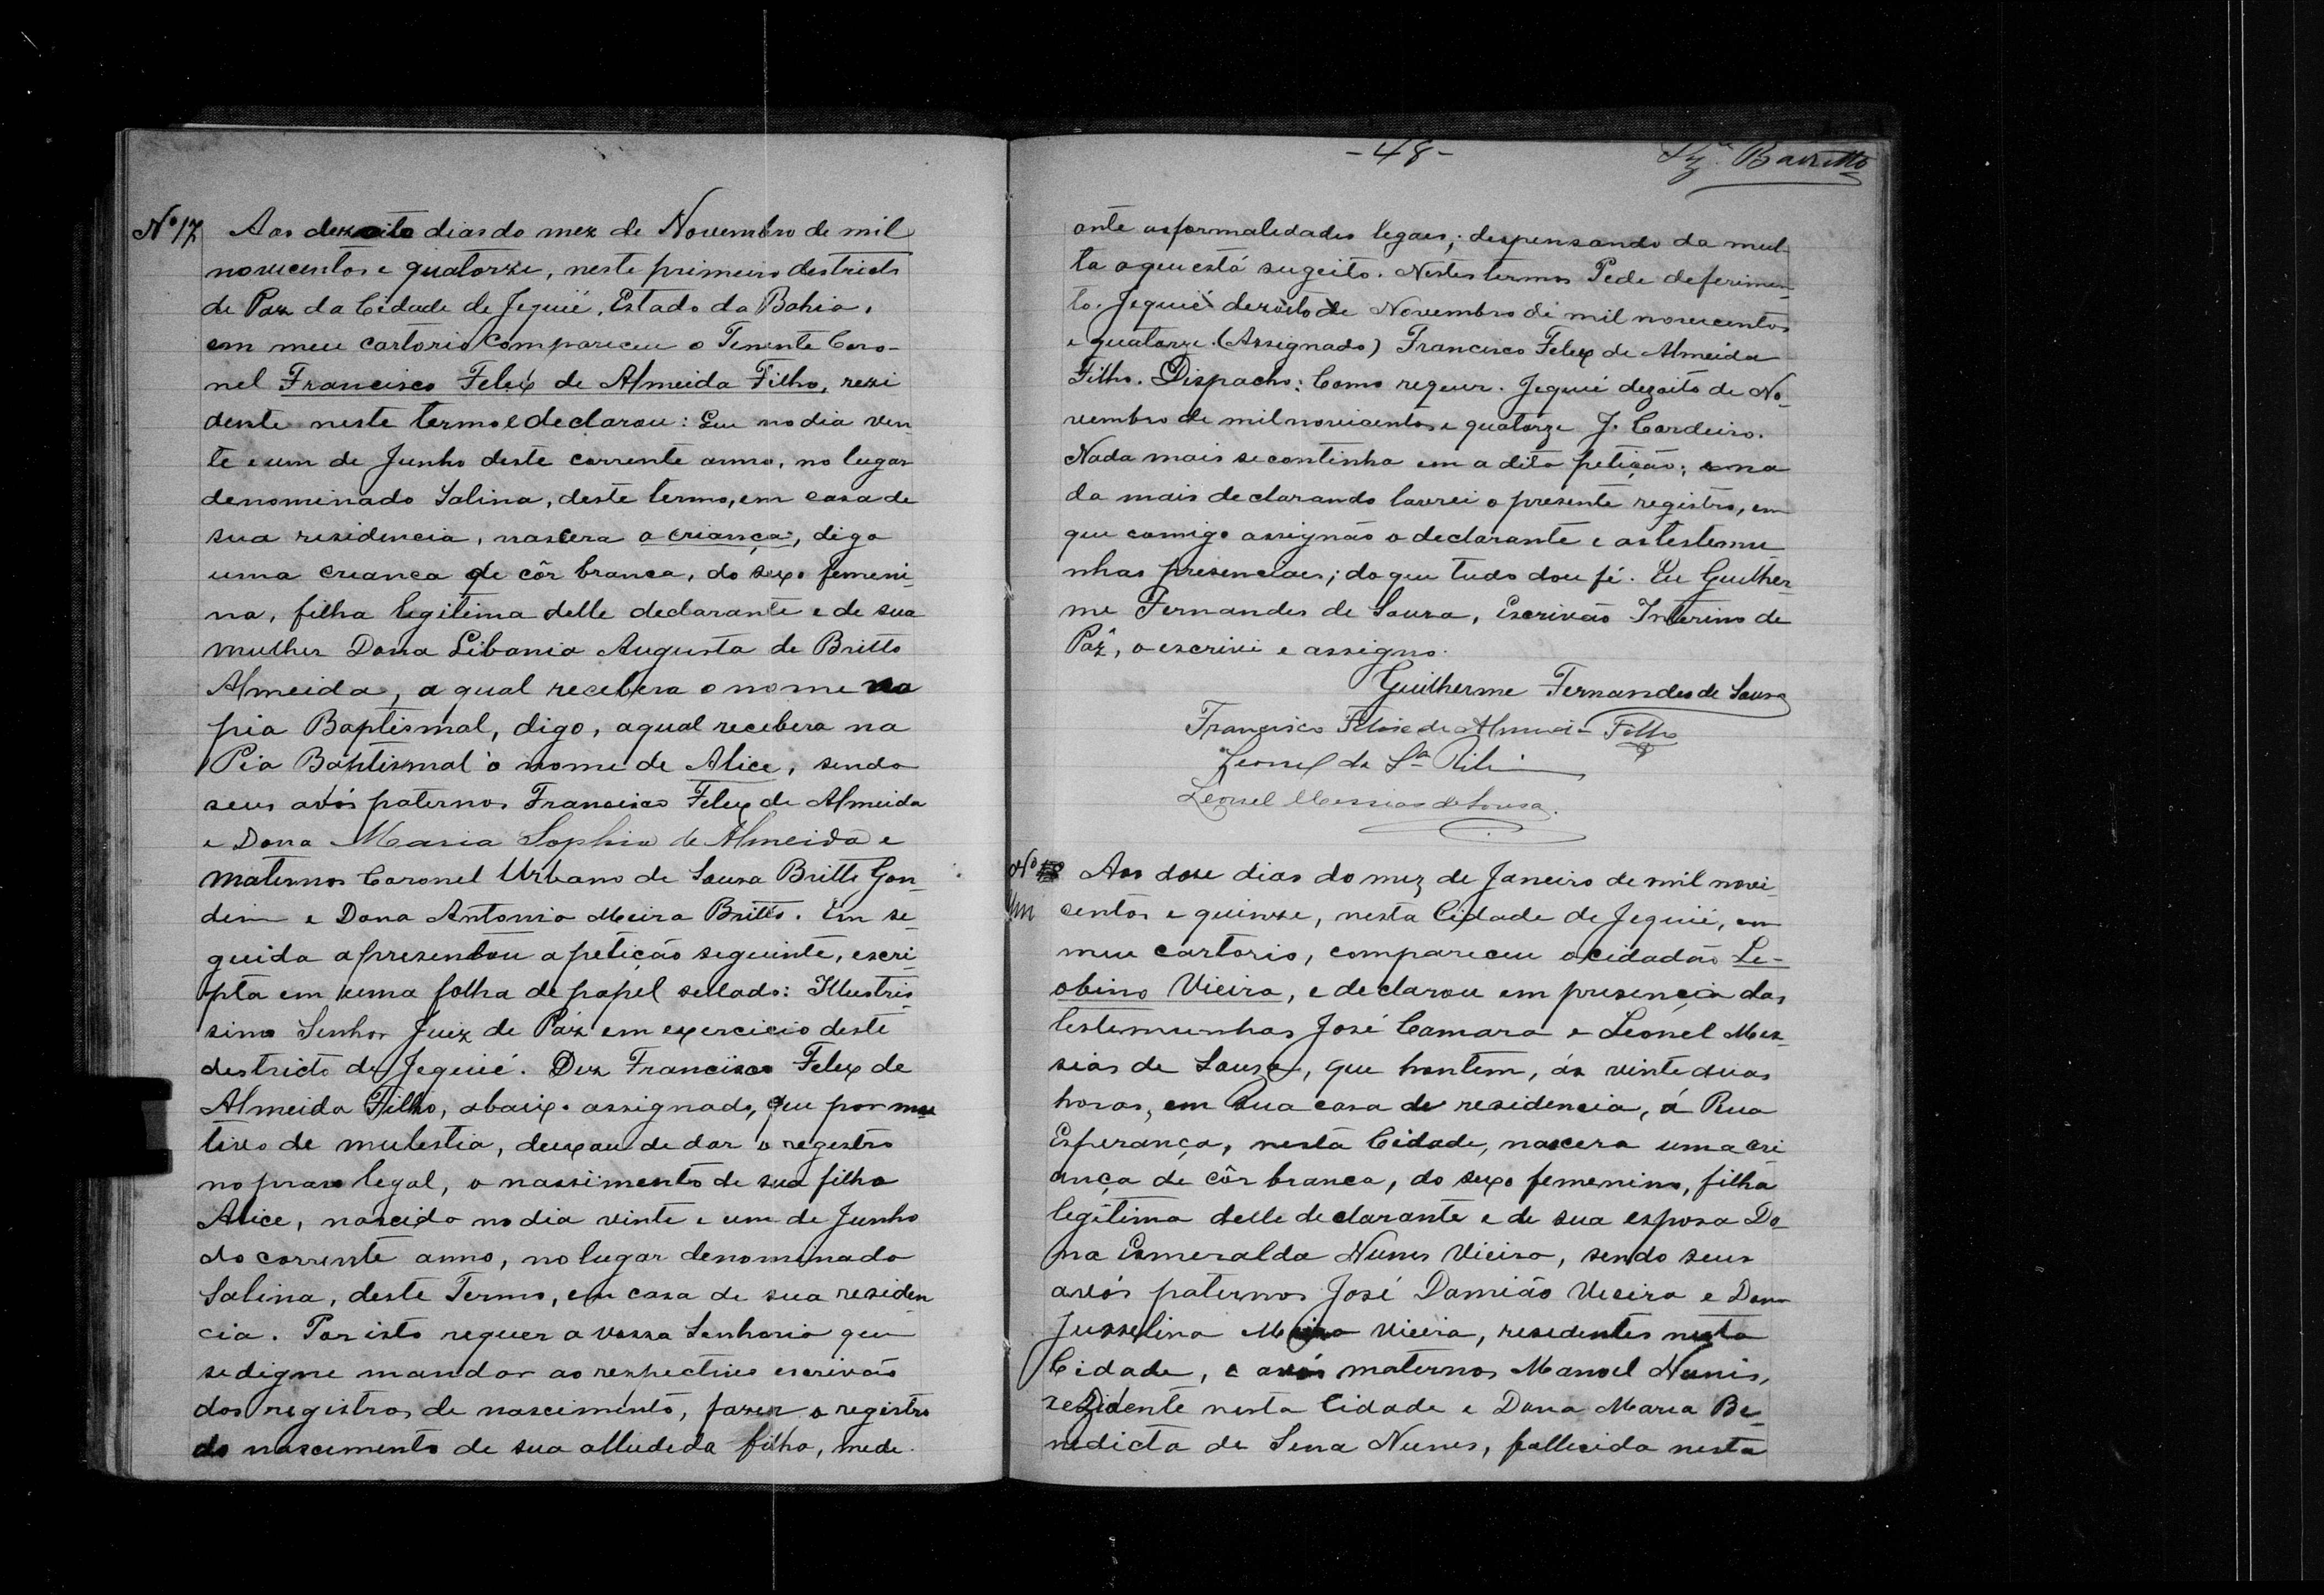 Nº 17 Aos dezoito dias do mez de Novembro de mil
novecentos e quatorze, neste primeiro destricto
de Paz da Cidade de Jequié, Estado da Bahia,
em meu cartorio compareceu o Tenente Coro-
nel Francisco Felix de Almeida Filho, rezi
dente neste termo e declarou: Que no dia vin
te e um de Junho deste corrente anno, no lugar
denominado Salina, deste termo, em casa de
sua residencia, nascera a criança, digo
uma creanca de côr branca, do sexo femeni-
no, filha legitima delle declarante e de sua
mulher Dona Libania Augusta de Britto
Almeida, a qual recebera o nome na
pia Baptismal, digo, a qual recebera na
Pia Baptismal o nome de Alice, sendo
seus avós paternos Francisco Felix de Almeida
e Dona Maria Sophia de Almeida e
maternos Coronel Urbano de Sousa Britto Gon-
dim e Dona Antonia Meira Britto. Em se-
guida apresentou a petição seguinte, escri-
pta em uma folha de papel sellado: Illustris
simo Senhor Juiz de Paz em exercicio deste
destricto de Jequié. Diz Francisco Felix de
Almeida Filho, abaixo assignado, que por mo
tivo de mulestia, deixou de dar o registro
no praso legal, o nassimento de sua filha
Alice, nascida no dia vinte e um de Junho
do corrente anno, no lugar denominado
Salina, deste Termo, em casa de sua residen
cia. Por isto requer a vossa Senhoria que
se digne mandar ao respectivo escrivão
dos registros de nascimento, fazer o registro
do nascimento de sua alludida filha, medi-
-48-
Barretto
ante as formalidades legaes; despensando da mul-
ta a que está sugeito. Nestes termos Pede deferimen-
to. Jequié dezoito de Novembro de mil novecentos
e quatorze. (Assignado) Francisco Felix de Almeida
Filho. Dispacho: Como requer. Jequié dezoito de No-
vembro de mil novicentos e quatorze J. Cordeiro.
Nada mais se continha em a dita petição; e na
da mais declarando lavrei o presente registro, em
que comigo assignão o declarante e as testemu-
nhas presenciaes; do que tudo dou fé. Eu Guilher-
me Fernandes de Sousa, Escrivão Interino de
Paz, o escrivi e assigno.
Guilherme Fernandes de Sousa
Francisco Felix de Almeida Filho
Leonel de Sta
Leonel Messias de Sousa.
Nº 18 Aos dose dias do mez de Janeiro de mil novi
centos e quinze, nesta Cidade de Jequié, em
meu cartorio, compareceu o cidadão Le-
obino Vieira, e declarou em presença das
testemunhas José Camara e Leonel Mes-
sias de Sousa, que hontem, ás vinte duas
horas, em sua casa de residencia, á Rua
Esperança, nesta Cidade, nascera uma cri
ança de côr branca, do sexo femenino, filha
legitima delle declarante e de sua esposa Do
na Esmeralda Nunes Vieira, sendo seus
avós paternos José Damião Vieira e Dona
Jusselina Vieira, residentes nesta
Cidade, e avós maternos Manoel Nunis,
rezidente nesta Cidade e Dona Maria Be-
nedicta de Sena Nunes, fallecida nesta